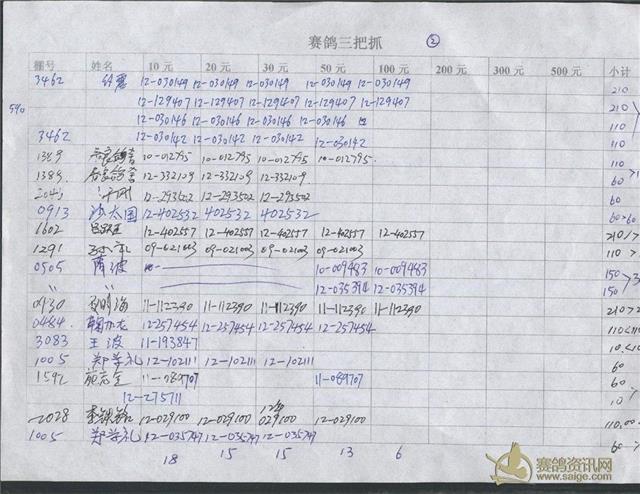 赛鸽三把抓 ②
棚号 姓名 10 元 20 元 30 元 50 元 100 元 200 元 300 元 500 元 小计
3462 12-030149 12-030149 12-030149 12-030149 12-030149 210
590 12-129407 12-129407 12-129407 12-129407 12-129407 210
12-030146 12-030146 12-030146 12-030146 110
3462 12-030142 12-030142 12-030142 12-030142 110
1389 10-012795 10-012795 10-012795 10-012795 110
1389 12-332109 12-332109 12-332109 60
12-293502 12-293502 12-293502 60
0913 沙太国 12-402532 402532 402532 60
1602 12-402557 12-402557 12-402557 12-402557 12-402557 210
1291 09-021003 09-021003 09-021003 09-021003 110
0505 波 10- 10-009483 10-009483 150
〃 〃 12-035394 12-035394 150
0930 11-112390 11-112390 11-112390 11-112390 11-112390 210
0484 12-257454 12-257454 12-257454 12-257454 110
3083 王波 11-193847 10
1005 郑学礼 12-102111 12-102111 12-102111 60
1592 11-089707 11-089707 60
12-275711 10
2028 12-029100 12-029100 12年 029100 12-029100 110
1005 郑学礼 12-035747 12-035747 12-035747 60
18 15 15 13 6
赛鸽资讯网
www.saige.com